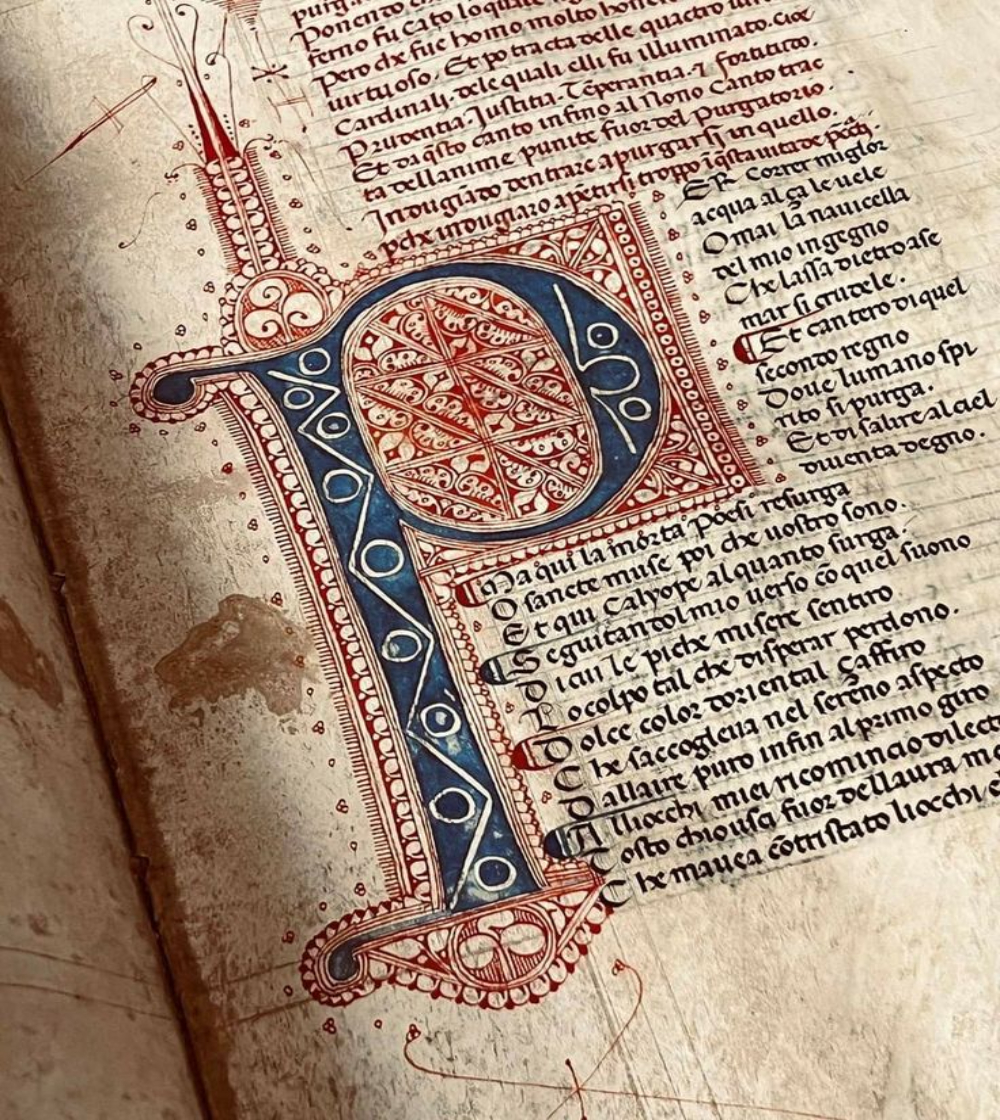 Ponendo
ferno fu Cato loquale
Pero che fue homo molto
uirtuoso. Et po tracta delle quactro
Cardinali. dele quali elli fu illuminato. cioe
Prudentia. Justitia. Tēperantia. ⁊ fortitudo.
Et da q̄sto canto infino al Nono Canto trac
ta dellanime punite fuor del Purgatorio.
Indugiādo dentrare a purgarsi in quello.
pche indugiaro
P
ER correr miglor
acqua alça le uele
Omai la nauicella
del mio ingegno
Che lassa dietro ase
mar si crudele.
Et cantero di quel
secondo regno
Doue lumano spi
rito si purga.
Et di salire al ciel
diuenta degno.
Ma qui la morta poesi resurga
O sancte muse poi che uostro sono.
Et qui Calyope alquanto surga.
Seguitando l mio uerso cō quel suono
Di cui le piche misere sentiro
Lo colpo tal che disperar perdono.
Dolce color doriental çaffiro
Che saccoglieua nel sereno aspecto
Dallaire puro infin al primo giro
Alliocchi miei ricomincio dilect
Tosto chio usci fuor dellaura mo
Che mauea cōtristato liocchi e